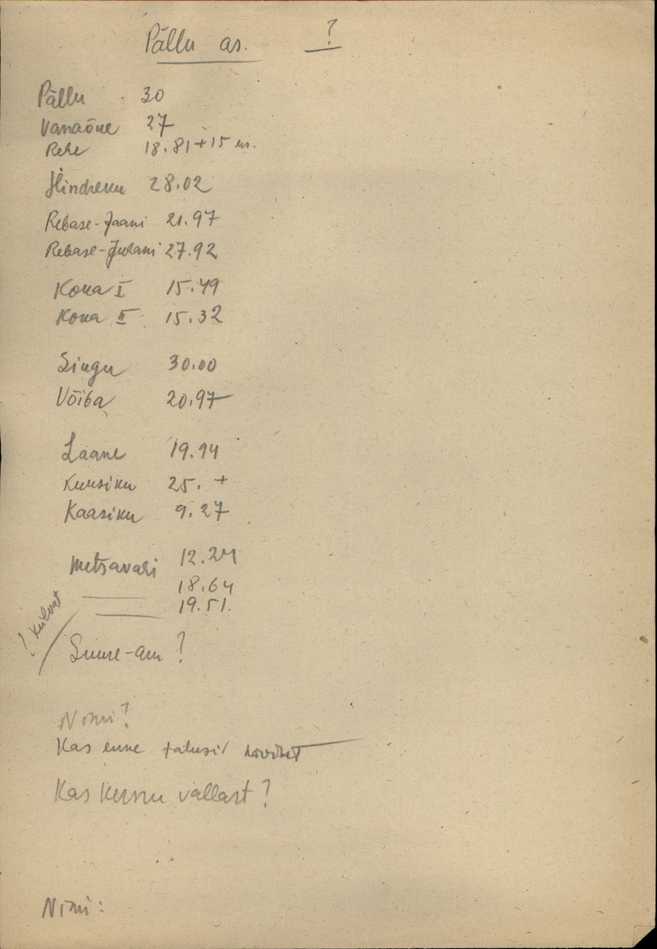 Pällu as. ?
Pällu 30
Vanaõue 27
Rehe 18.81 + 15 m.
Hindreku 28.02
Rebase-Jaani 21.97
Rebase-Juhani 27.92
Kona I 15.49
Kona II 15.32
Singu 30.00
Võiba 20.97
Laane 19.14
Kuusiku 25. +
Kaasiku 9.27
Metsavari 12.24
18.64
19.51.
Suure-am ?
Nimi?
Kas enne talusid
Kas Kursu vallast?
Nimi: